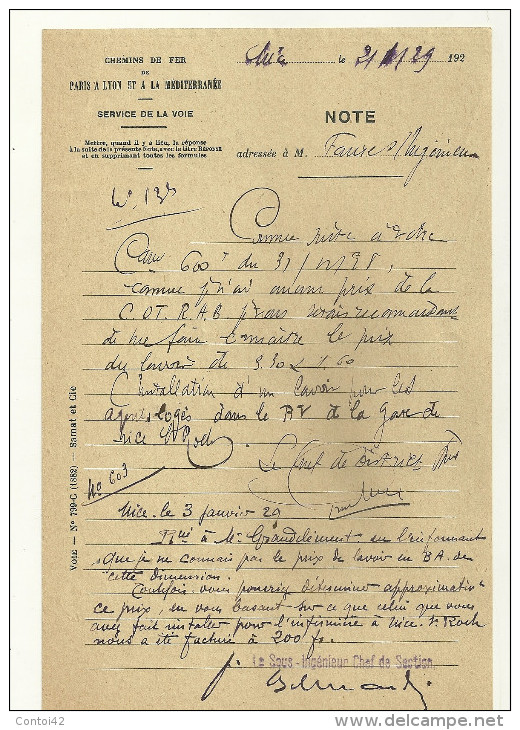 CHEMINS DE FER
DE
PARIS A LYON ET A LA MÉDITERRANÉE
SERVICE DE LA VOIE
Mettre, quand il y a lieu, la réponse
à la suite de la présente Note, avec le titre RÉPONSE
et en supprimant toutes les formules
Nice le 2/1/29 192
NOTE
adressée à M. Faure s/Ingénieur
Comme suite à votre
600 du 31/12/28,
comme je n'ai aucun prix de la
C. OT. R. A. B. je vous serais
de me faire connaître le prix
du lavoir de 3.30 x 1.60
L'installation d'un lavoir pour les
agents logés dans le BV de la Gare de
Nice St Roch
Le Chef de District
No 603
Nice, le 3 janvier 29
à Mr Grandclément en l'informant
que je ne connais pas le prix de lavoir en BA. de
cette dimension.
Toutefois vous pourriez déterminer approximativt
ce prix, en vous basant sur ce que celui que vous
avez fait installer pour l'infirmière à Nice St Roch
nous a été facturé à 200 fr.
Le Sous-Ingénieur Chef de Section,
VOIE — N° 799-G (1882) — Sarnat et Cie
Contoi42
www.delcampe.net